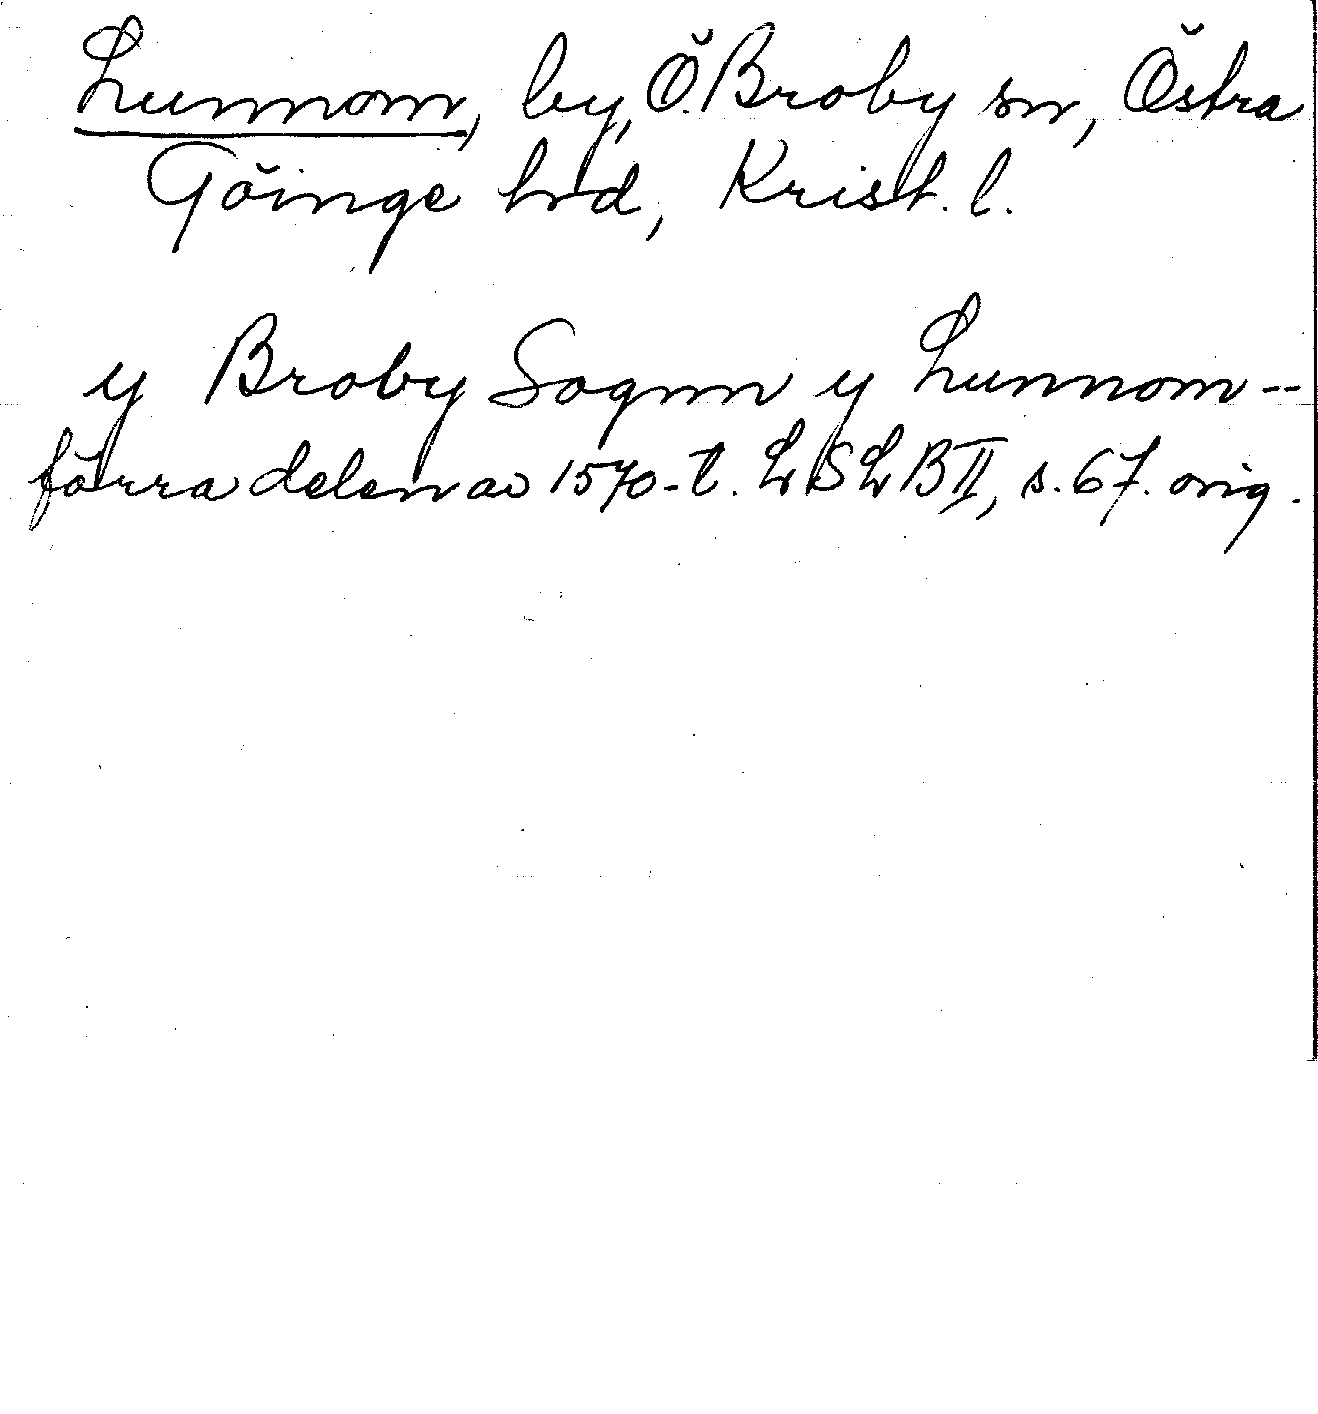 Lunnom, by, Ö. Broby sn, Östra
Göinge hrd, Krist. l.
y Broby Sognn y Lunnom --
förra delen av 1570-t. LSLB II, s. 67. orig.